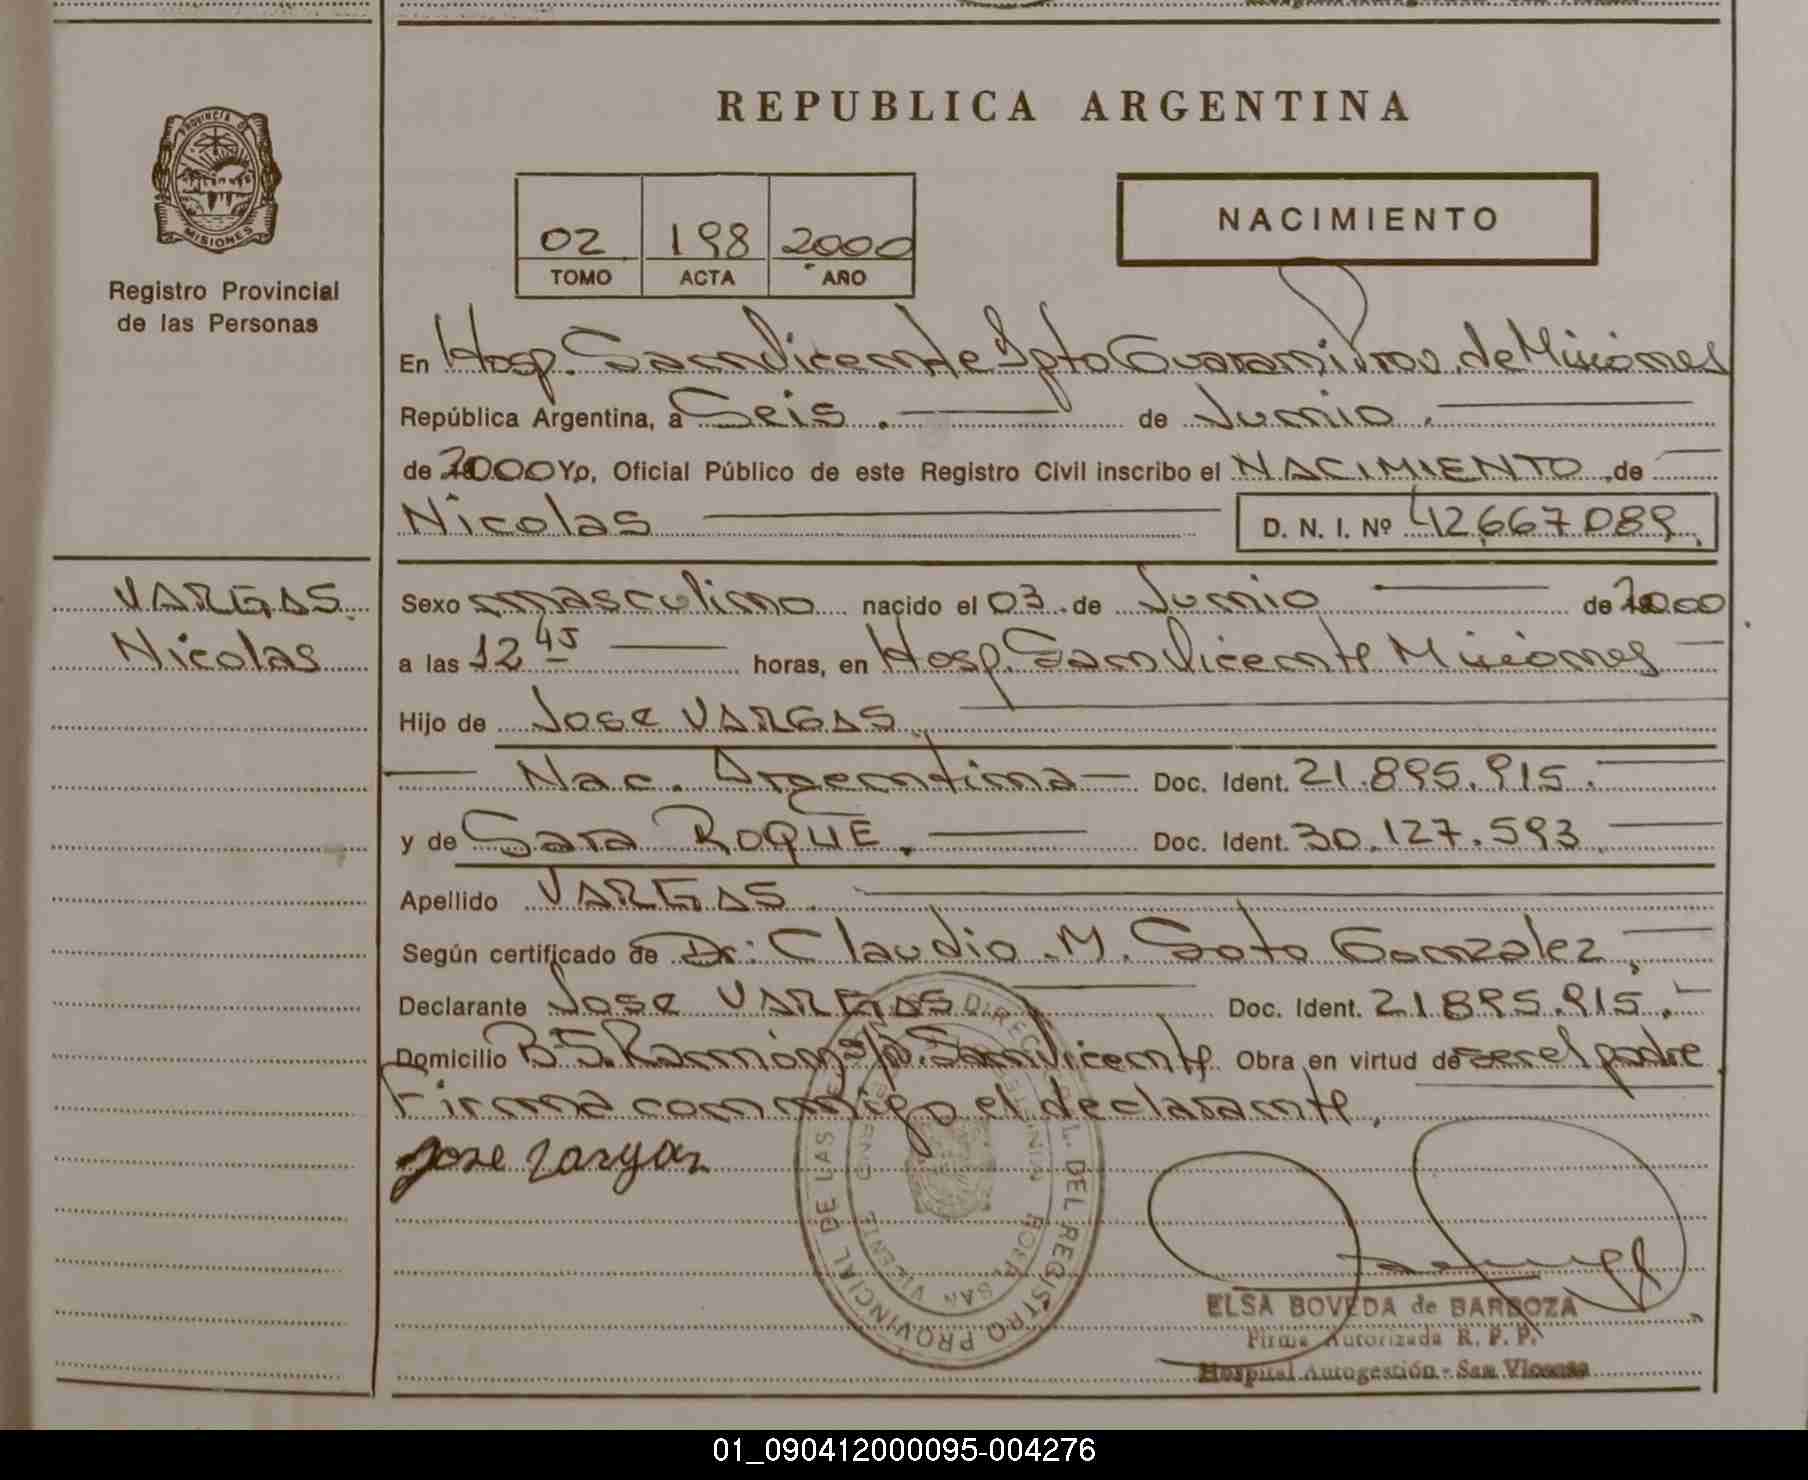 REPUBLICA ARGENTINA
PROVINCIA DE
MISIONES
Registro Provincial
de las Personas
02 198 2000
TOMO ACTA AÑO
NACIMIENTO
En Hosp. San Vicente Dpto Guarani Prov. de Misiones
República Argentina, a Seis. de Junio.
de 2000 Yo, Oficial Público de este Registro Civil inscribo el NACIMIENTO de
Nicolas D. N. I. Nº 42.667.089.
VARGAS
Nicolas
Sexo masculino nacido el 03 de Junio de 2000
a las 12 45 horas, en Hosp. San Vicente Misiones
Hijo de Jose VARGAS.
Nac. Argentina Doc. Ident. 21.895.915.
y de Sara ROQUE. Doc. Ident. 30.127.593
Apellido VARGAS.
Según certificado de Dr: Claudio M. Soto Gonzalez.
Declarante Jose VARGAS Doc. Ident. 21895.915.
Domicilio B° S. Ramón s/n. San Vicente Obra en virtud de ser el padre
Firma conmigo el declarante.
Jose Vargas
REGISTRO PROVINCIAL DE LAS
DEL
HOSP. SAN VICENTE
ELSA BOVEDA de BARBOZA
Firma Autorizada R. P. P.
Hospital Autogestión - San Vicente
01_090412000095-004276